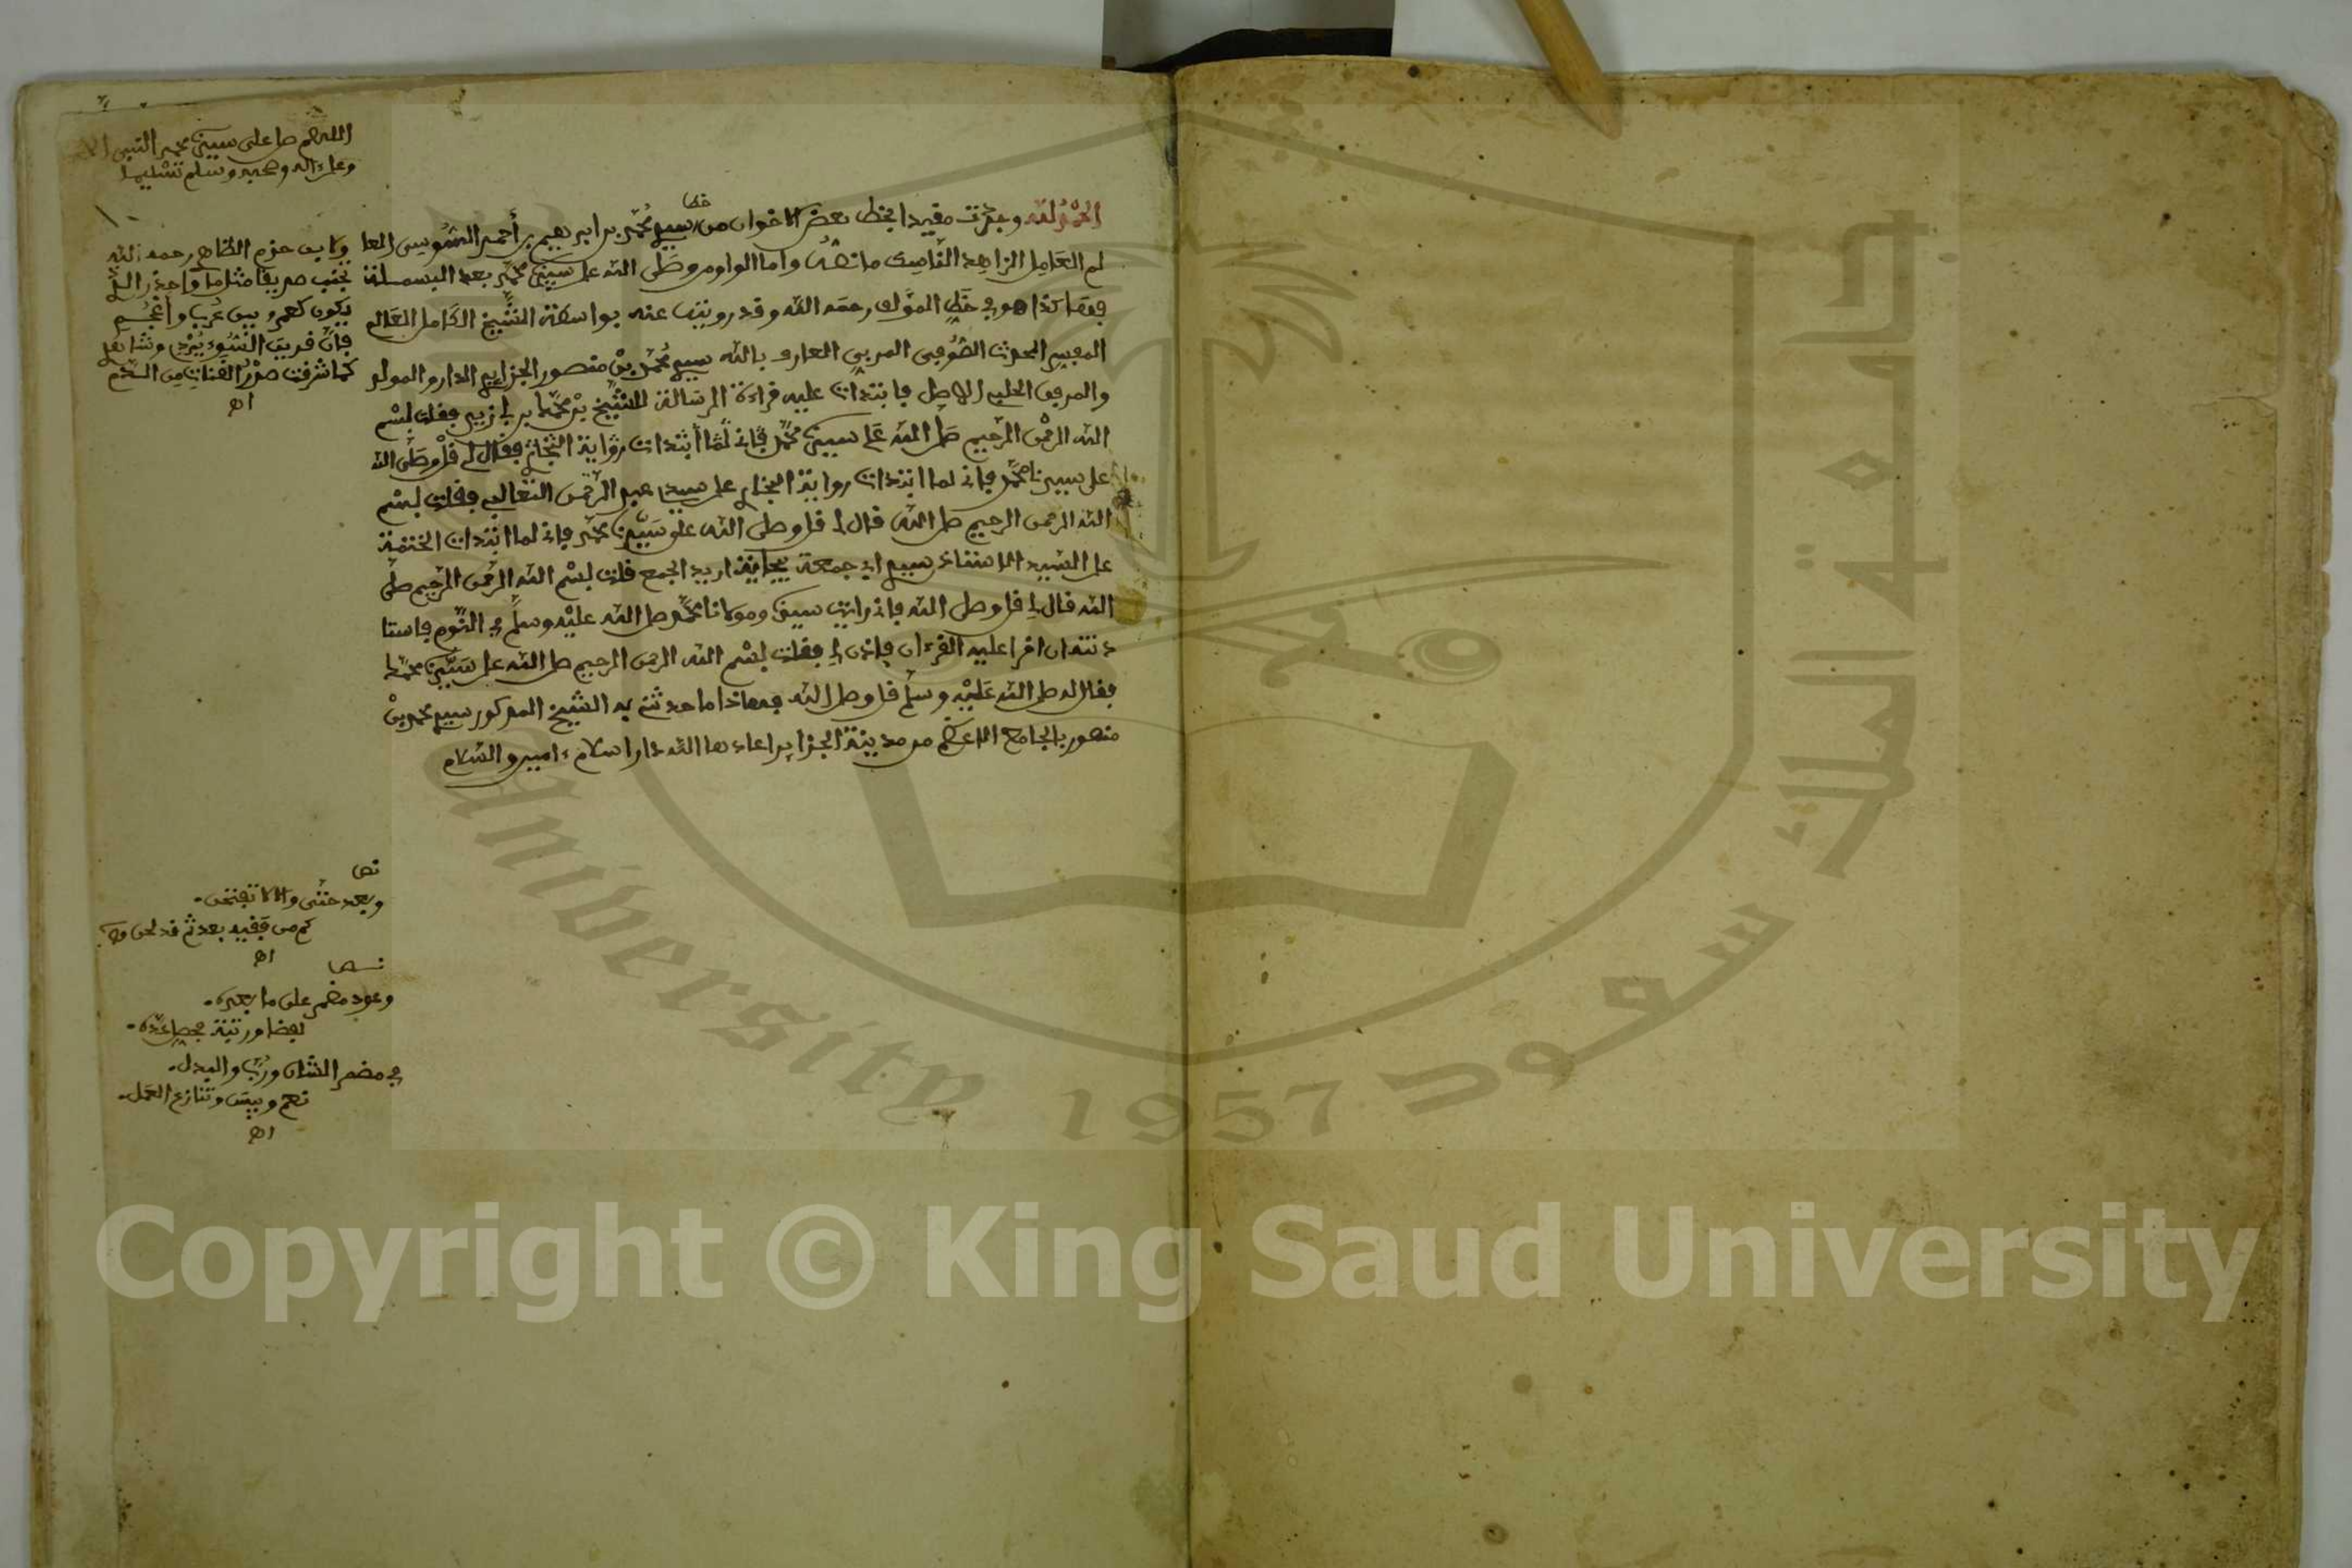 اللهم صل على سيدنا محمد النبي
وعلى ءاله وصحبه وسلم تسليما
خط
الحمد لله وجدت مقيدا بخط بعض الاخوان من سيدي محمد بن ابراهيم بن أحمد السوسي العا
لم العامل الزاهد الناسك ما نصه واما الواو من وصلى الله على سيدنا محمد بعد البسملة
فهاكذا هو في خط المؤلف رحمه الله وقد رويت عنه بواسطة الشيخ الكامل العالم
المحدث الصوفي المربي العارف بالله سيدي محمد بن منصور الجزايري الدار والمولد
والمربى الاصل فابتدات عليه قراءة الرسالة للشيخ بن أبي زيد فقلت بسم
الله الرحمن الرحيم صلى الله على سيدنا محمد فاني لما أبتدات رواية البخاري فقال لي قل وصلى الله
على سيدنا محمد فاني لما ابتدات رواية البخاري على سيدي عبد الرحمن الثعالبي فقلت بسم
الله الرحمن الرحيم صلى الله قال لي قل وصلى الله على سيدنا محمد فاني لما ابتدات الختمة
على السيد الاستاذ سيدي ابي جمعة اريد الجمع قلت بسم الله الرحمن الرحيم صلى
الله قال لي قل وصلى الله فاني رايت سيدنا ومولانا محمد صلى الله عليه وسلم في النوم فاستا
ذنته ان اقرا عليه القرءان فاذن لي فقلت بسم الله الرحمن الرحيم صلى الله على سيدنا محمد
فقال له صلى الله عليه وسلم قل وصلى الله فهاذا ما حدثني به الشيخ المذكور سيدي محمد بن
منصور بالجامع الاعظم من مدينة الجزاير اعادها الله دار اسلام ءامين والسلام
ولابن حزم الظاهر رحمه الله
تجنب صديقا مثل ما واحذر الذي
يكون كعمرو بين عرب وأعجم
فإن قرين السوء يردي وشاهدي
كما شرقت صدر القناة من الدم
اهـ
نص
وبعد حتى والا لا تفتحن
كم من فقيه بعد ثم قد لحن
اهـ
نص
وعود مضمر على ما بعده
لفظا ورتبة
في مضمر الشان ورب والبدل
نعم وبيس وتنازع العمل
اهـ
جامعة الملك سعود
University 1957
Copyright © King Saud University